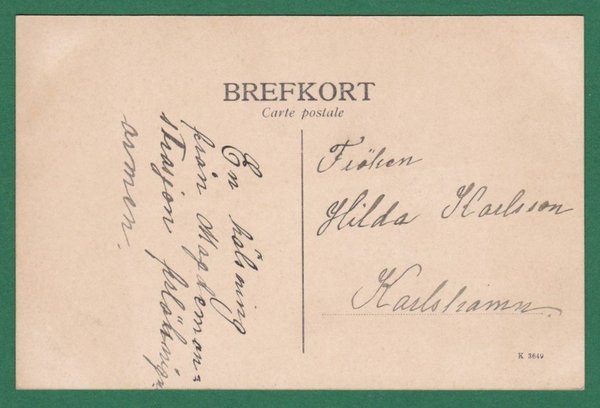 BREFKORT
Carte postale
En hälsning
från
armen.
Fröken
Hilda Karlsson
Karlshamn.
K 3649